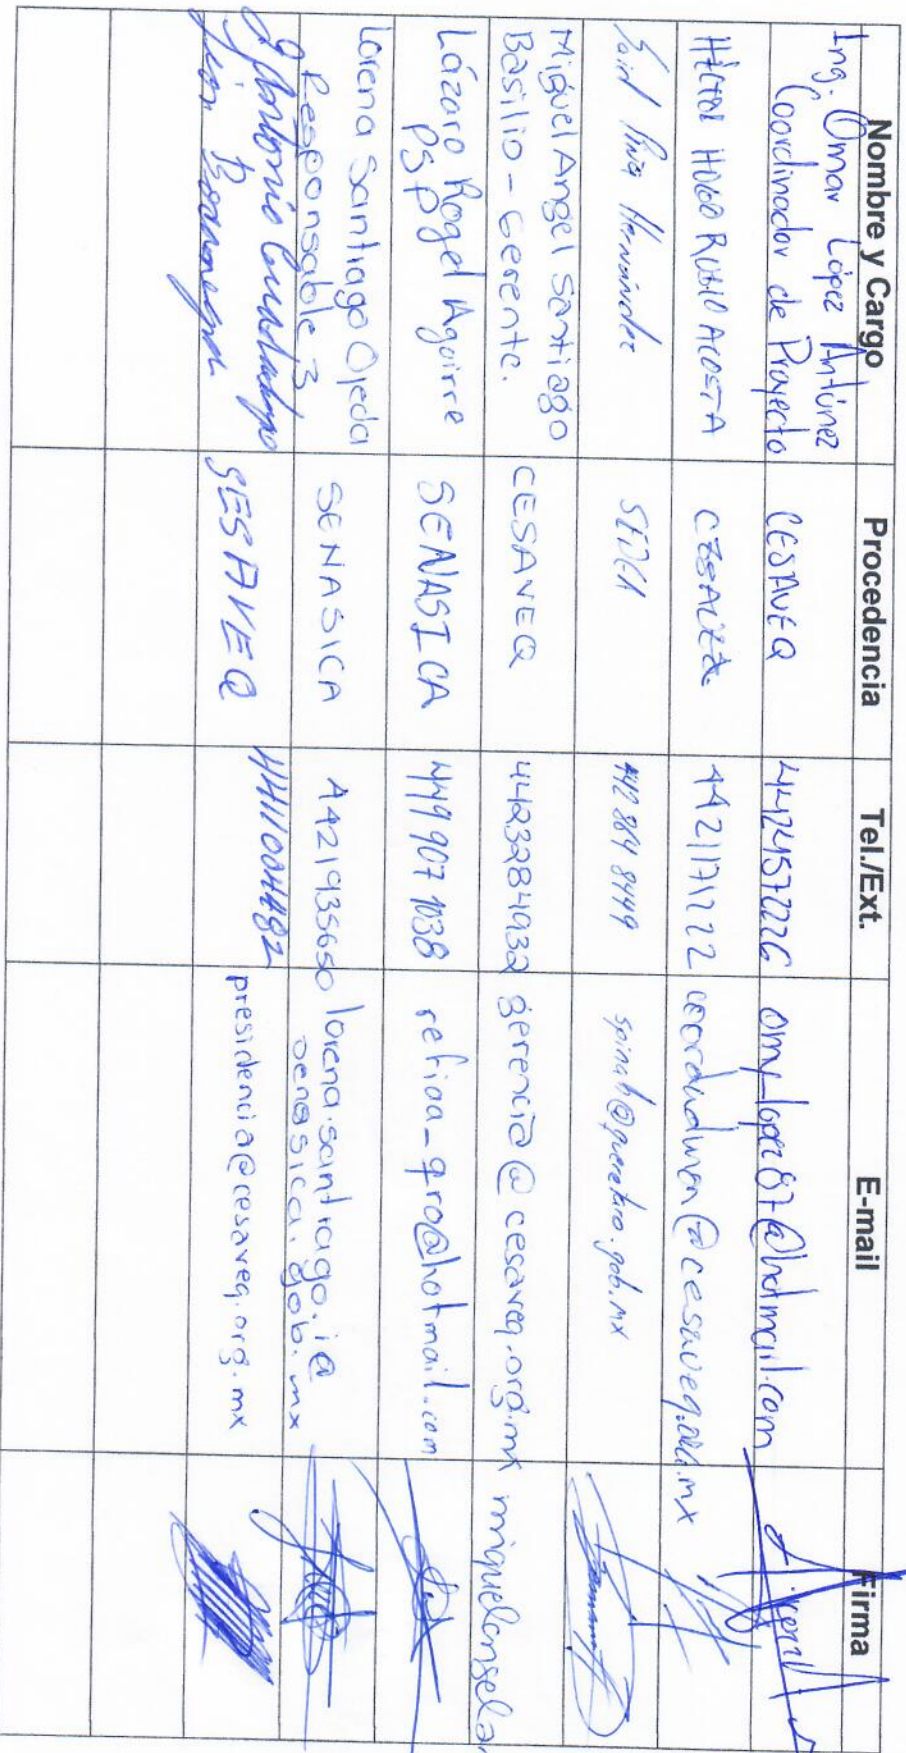 Nombre y Cargo Procedencia Tel./Ext. E-mail Firma
Ing. Omar López Antúnez
Coordinador de Proyecto CESAVEQ 4424572226 omy_lopez87@hotmail.com
HÉCTOR HUGO RUBIO ACOSTA 4421171222
Hernández SEDEA 442 884 8449 spinah@queretaro.gob.mx
Miguel Angel Santiago
Basilio - Gerente. CESAVEQ 4423284932 gerencia@cesaveq.org.mx
Lázaro Rogel Aguirre
PSP SENASICA 449 907 1038 refiaa_qro@hotmail.com
Lorena Santiago Ojeda
Responsable 3 SENASICA 4421935650 lorena.santiago.i@
senasica.gob.mx
J Antonio
CESAVEQ presidencia@cesaveq.org.mx